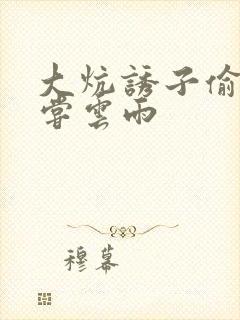 大炕誘子偷
嘗雲雨
穆幕